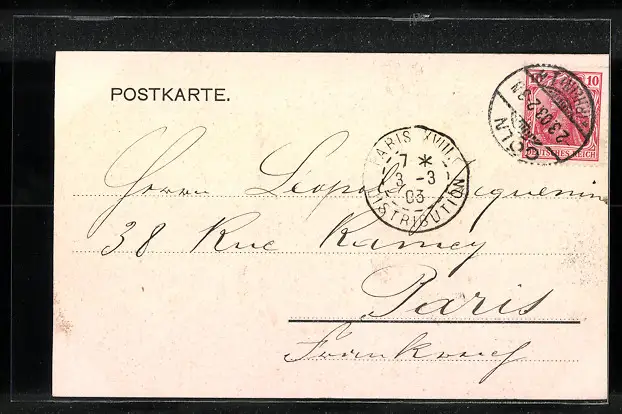 POSTKARTE.
10
DEUTSCHES REICH
CÖLN
2.3.03.2-3N
PARIS XVIII
7 *
3 -3
03
DISTRIBUTION
Herrn Leopold
38 Rue Ramey
Paris
Frankreich